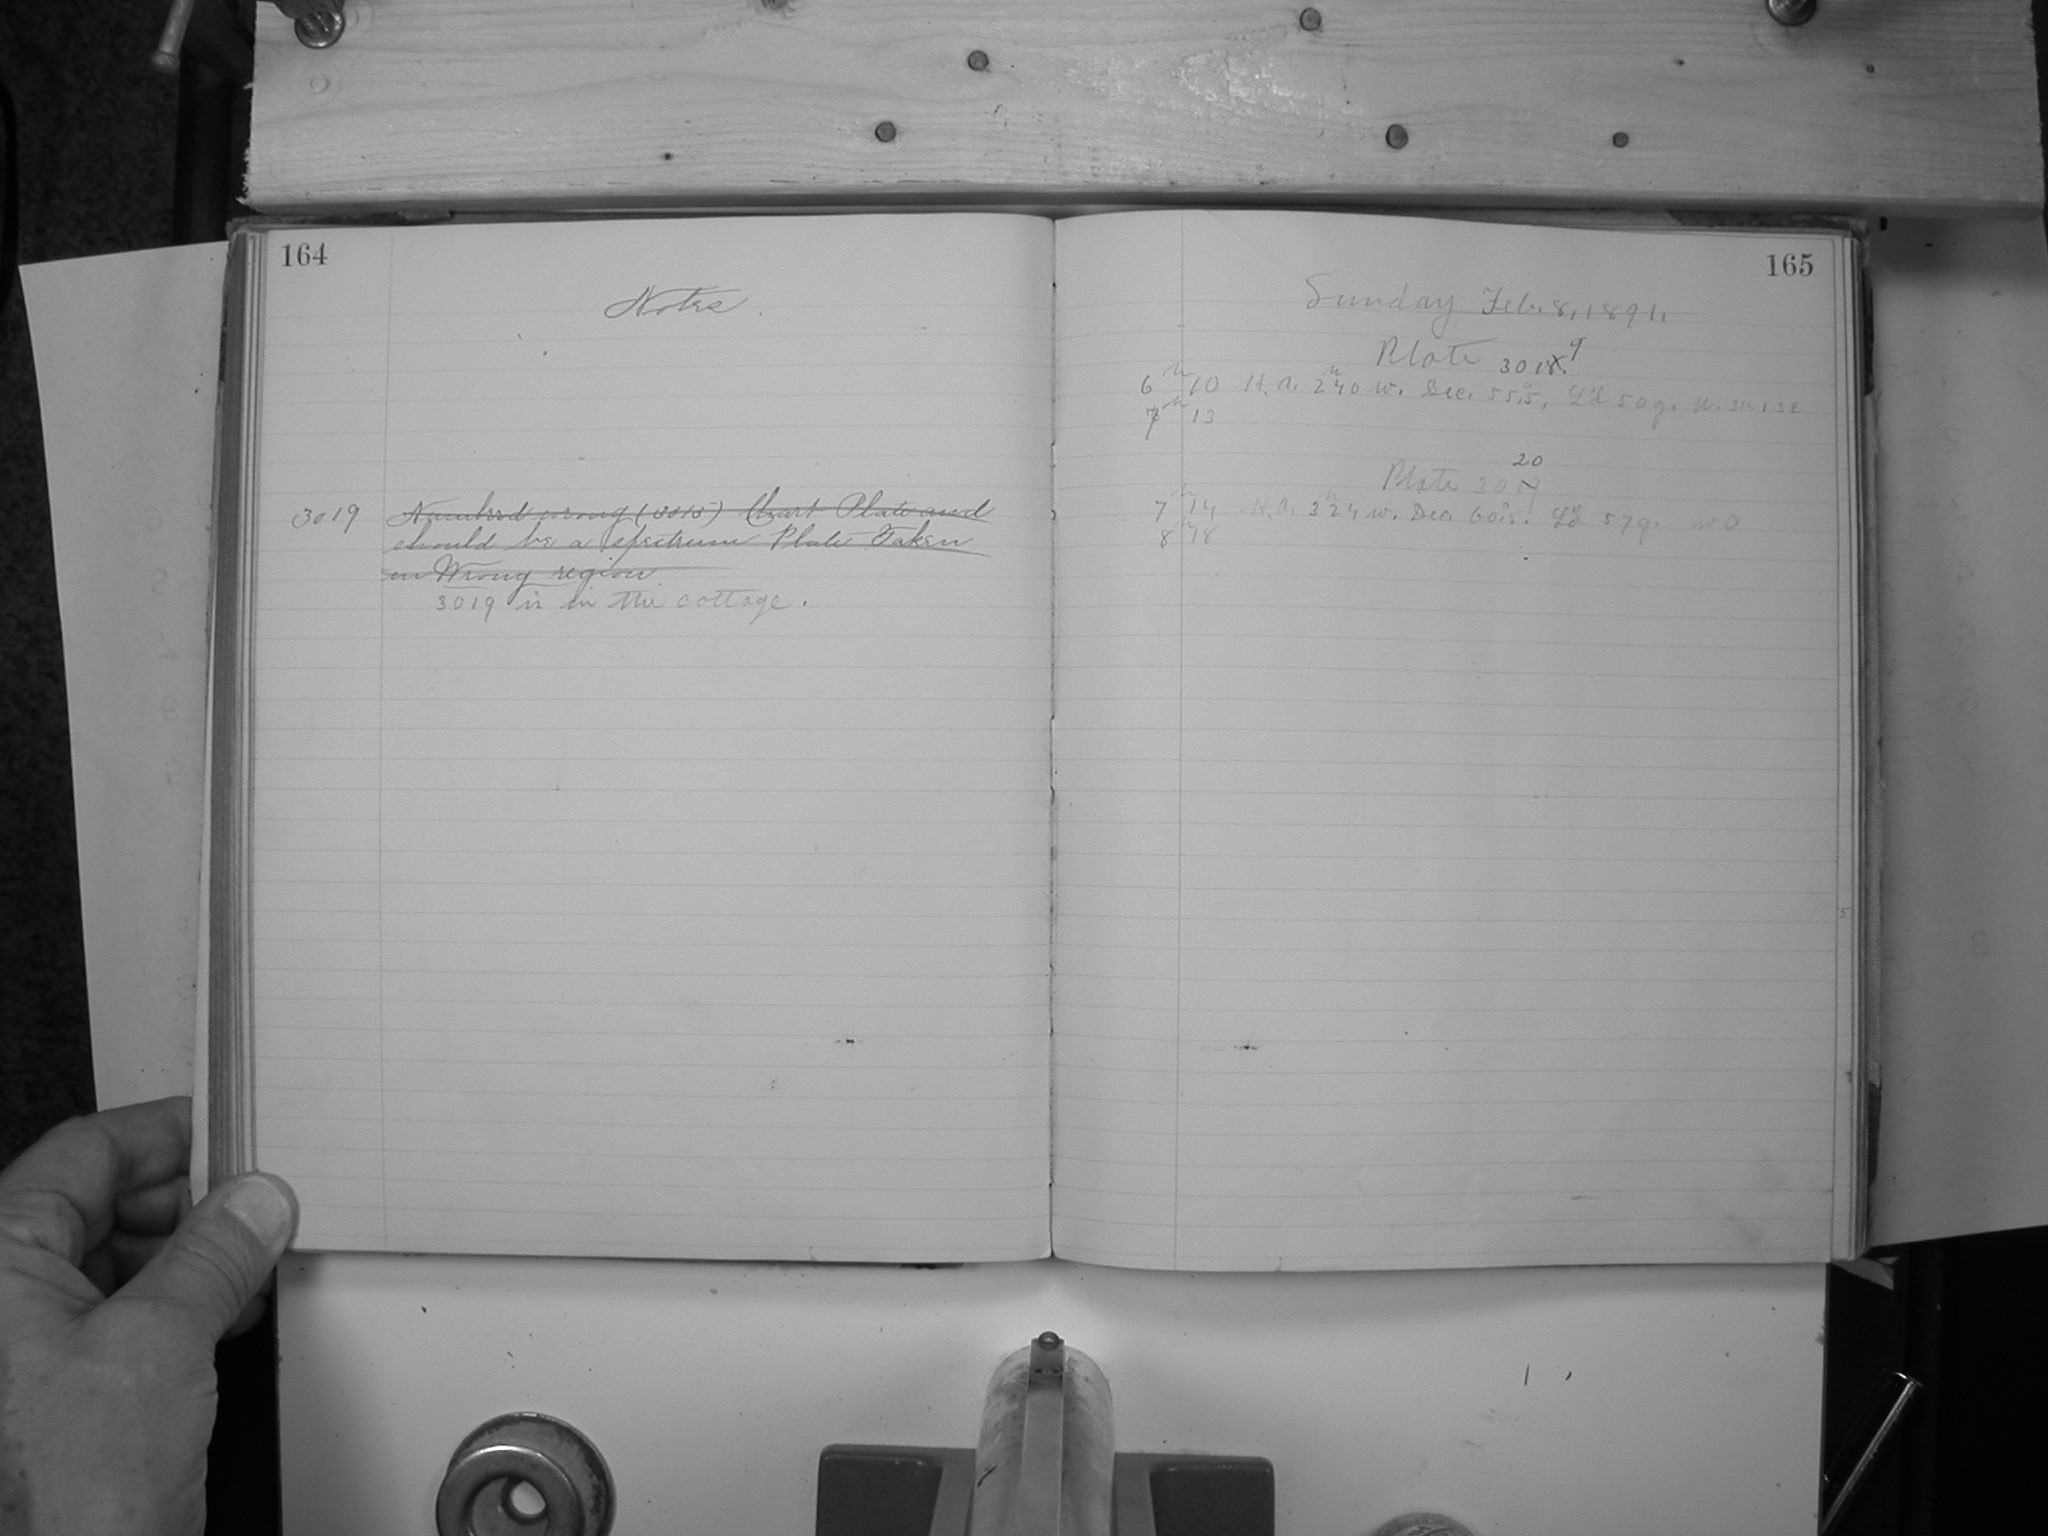 164
Notes.
3019 Numberd wrong (3018) Chart Plate and
should be a spectrum Plate Taken
in Wrong region
3019 is in the cottage.
165
Sunday Feb. 8, 1891.
9
Plate 3018.
6h 10 H.A. 2h40 W. Dec. 55.5, L'd 50g.
7h 13
20
Plate 3019
7h 14 H.A. 3h24 W. Dec. 60.5. L'd 57g. W 0
8h 18